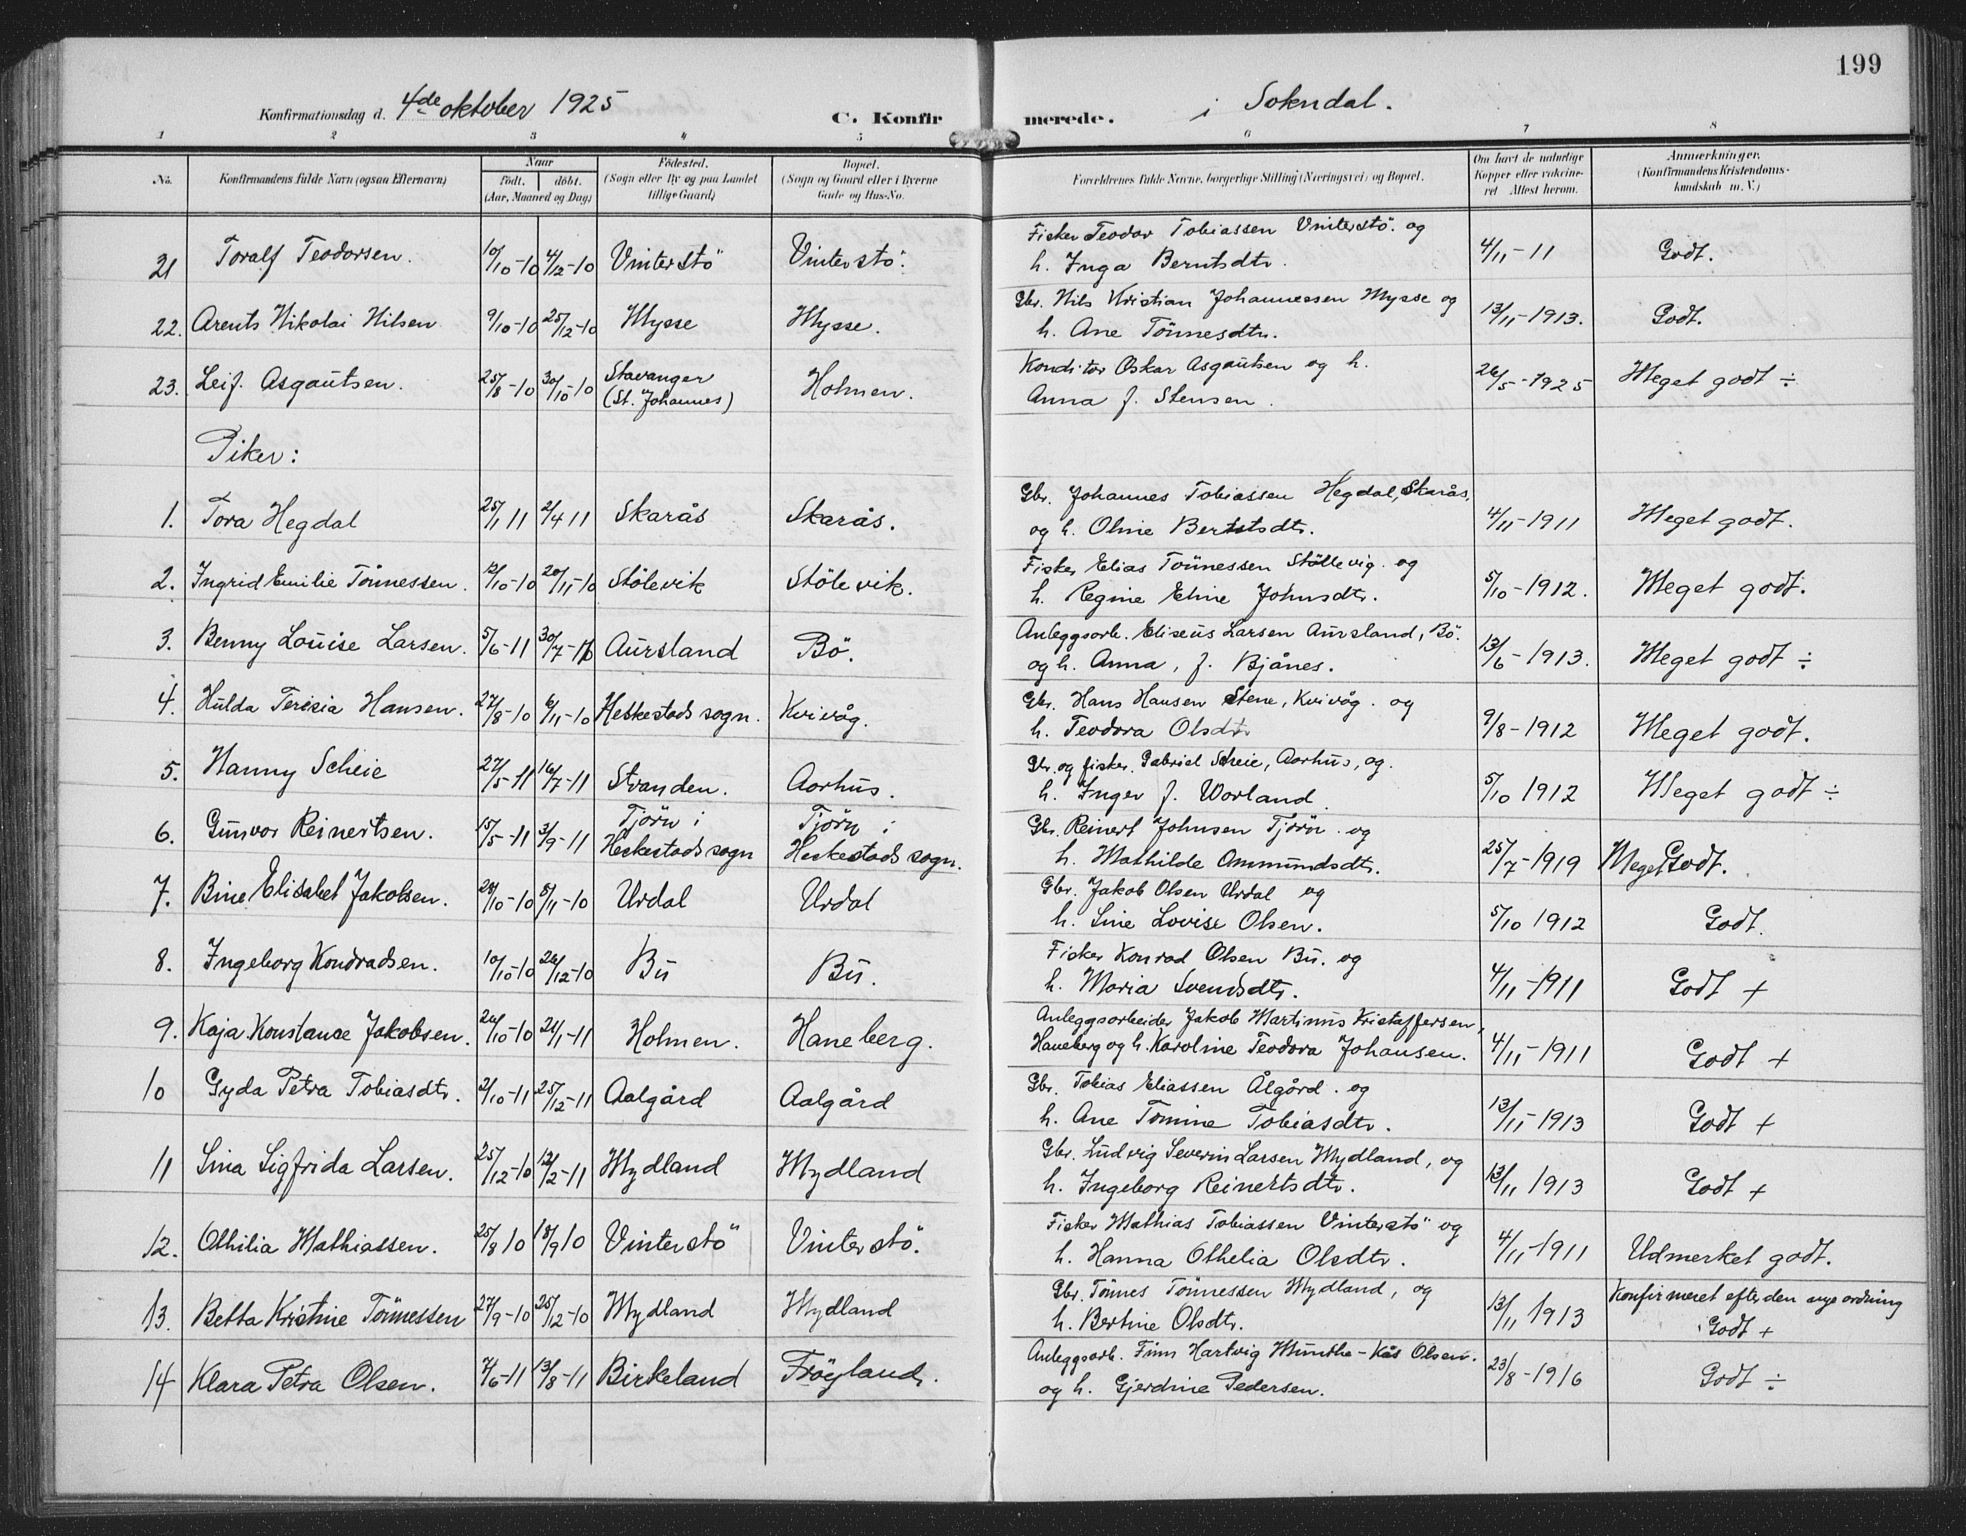 199
Konfirmationsdag d. 4de oktober 1925 C. Konfirmerede. i Sokndal.
1 2 3 4 5 6 7 8
No. Konfirmandens fulde Navn (ogsaa Efternavn) Naar født. døbt. (Aar, Maaned og Dag) Fødested. (Sogn eller By og paa Landet tillige Gaard) Bopæl. (Sogn og Gaard eller i Byerne Gade og Hus-No. Forældrenes fulde Navne, borgerlige Stilling (Næringsvei) og Bopæl. Om havt de naturlige Kopper eller vakcineret. Attest herom. Anmærkninger. (Konfirmandens Kristendomskundskab m. V.)
21 Toralf Teodorsen. 10/10-10 4/12-10 Vinterstö Vinterstö. Fisker Teodor Tobiassen Vinterstö. og
h. Inga Berntsdtr. 4/11-11 Godt.
22. Arents Nikolai Nilsen 9/10-10 25/12-10 Mysse Mysse. Gbr. Nils Kristian Johannessen Mysse og
h. Ane Tönnesdtr. 13/11-1913. Godt.
23. Leif Asgautsen. 25/8-10 30/10-10 Stavanger (St. Johannes) Holmen. Konditor Oskar Asgautsen og h.
Anna f. Stensen. 26/5-1925 Meget godt ÷
Piker:
1. Tora Hegdal 25/1 11 2/4 11 Skarås Skarås. Gbr. Johannes Tobiassen Hegdal, Skarås,
og h. Oline Berntsdtr. 4/11-1911 Meget godt.
2. Ingrid Emilie Tönnessen. 12/10-10 20/11-10 Stölevik Stölevik. Fisker Elias Tönnessen Stöllevig. og
h. Regine Eline Johnsdtr. 5/10-1912. Meget godt.
3. Benny Louise Larsen. 5/6-11 30/7-11 Aursland Bö. Anleggsarb. Eliseus Larsen Aursland, Bö.
og h. Anna, f. Bjånes. 13/6-1913. Meget godt ÷
4. Hulda Teresia Hansen. 27/8-10 6/11-10 Heskestad sogn. Kvivåg. Gbr. Hans Hansen Stene, Kvivåg. og
h. Teodora Olsdtr 9/8-1912 Meget godt.
5. Nanny Scheie 27/5-11 16/7-11 Stranden. Aarhus. Gbr. og fisker. Gabriel Scheie, Aarhus, og.
h. Inger f. Worland. 5/10 1912 Meget godt ÷
6. Gunvor Reinertsen. 15/5-11 3/9-11 Tjörn i Heskestad sogn Tjörn i Heskestad sogn. Gbr. Reinert Johnsen Tjörn. og
h. Mathilde Ammundsdtr. 25/7-1919 Meget Godt.
7. Bine Elisabet Jakobsen. 20/10-10 5/11-10 Urdal Urdal Gbr. Jakob Olsen Urdal og
h. Sine Lovise Olsen. 5/10 1912 Godt.
8. Ingeborg Kondradsen. 10/10-10 26/12-10 Bu Bu. Fisker Konrad Olsen Bu. og
h. Maria Svendsdtr. 4/11-1911 Godt +
9. Kaja Konstance Jakobsen. 26/10-10 21/1-11 Holmen. Haneberg. Anleggsarbeider Jakob Martinus Kristoffersen,
Haneberg og h. Karoline Teodora Johansen. 4/11-1911 Godt +
10 Gyda Petra Tobiasdtr. 2/10-11 25/12-11 Aalgård Aalgård Gbr. Tobias Eliassen Ålgård. og
h. Ane Tomine Tobiasdtr. 13/11-1913 Godt +
11 Sina Sigfrida Larsen. 25/12-10 12/2-11 Mydland Mydland Gbr. Ludvig Severin Larsen Mydland, og
h. Ingeborg Reinertsdtr. 13/11 1913 Godt +
12. Othilia Mathiassen. 25/8 10 18/9 10 Vinterstö Vinterstö. Fisker Mathias Tobiassen Vinterstö og
h. Hanna Othelia Olsdtr. 4/11-1911 Udmerket godt.
13. Betta Kristine Tönnessen 27/9-10 25/12-10 Mydland Mydland Gbr. Tönnes Tönnessen Mydland, og
h. Bertine Olsdtr. 13/11 1913 Konfirmeret efter den nye ordning Godt +
14 Klara Petra Olsen. 7/6-11 13/8-11 Birkeland Fröyland. Anleggsarb. Finn Hartvig Munthe-Kås Olsen.
og h. Gjerdine Pedersen. 23/8-1916 Godt ÷